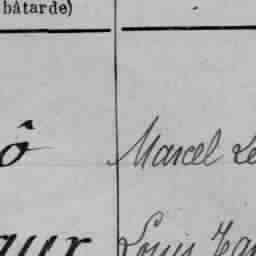 bâtarde)
ô Marcel Le
aur Louis Jan